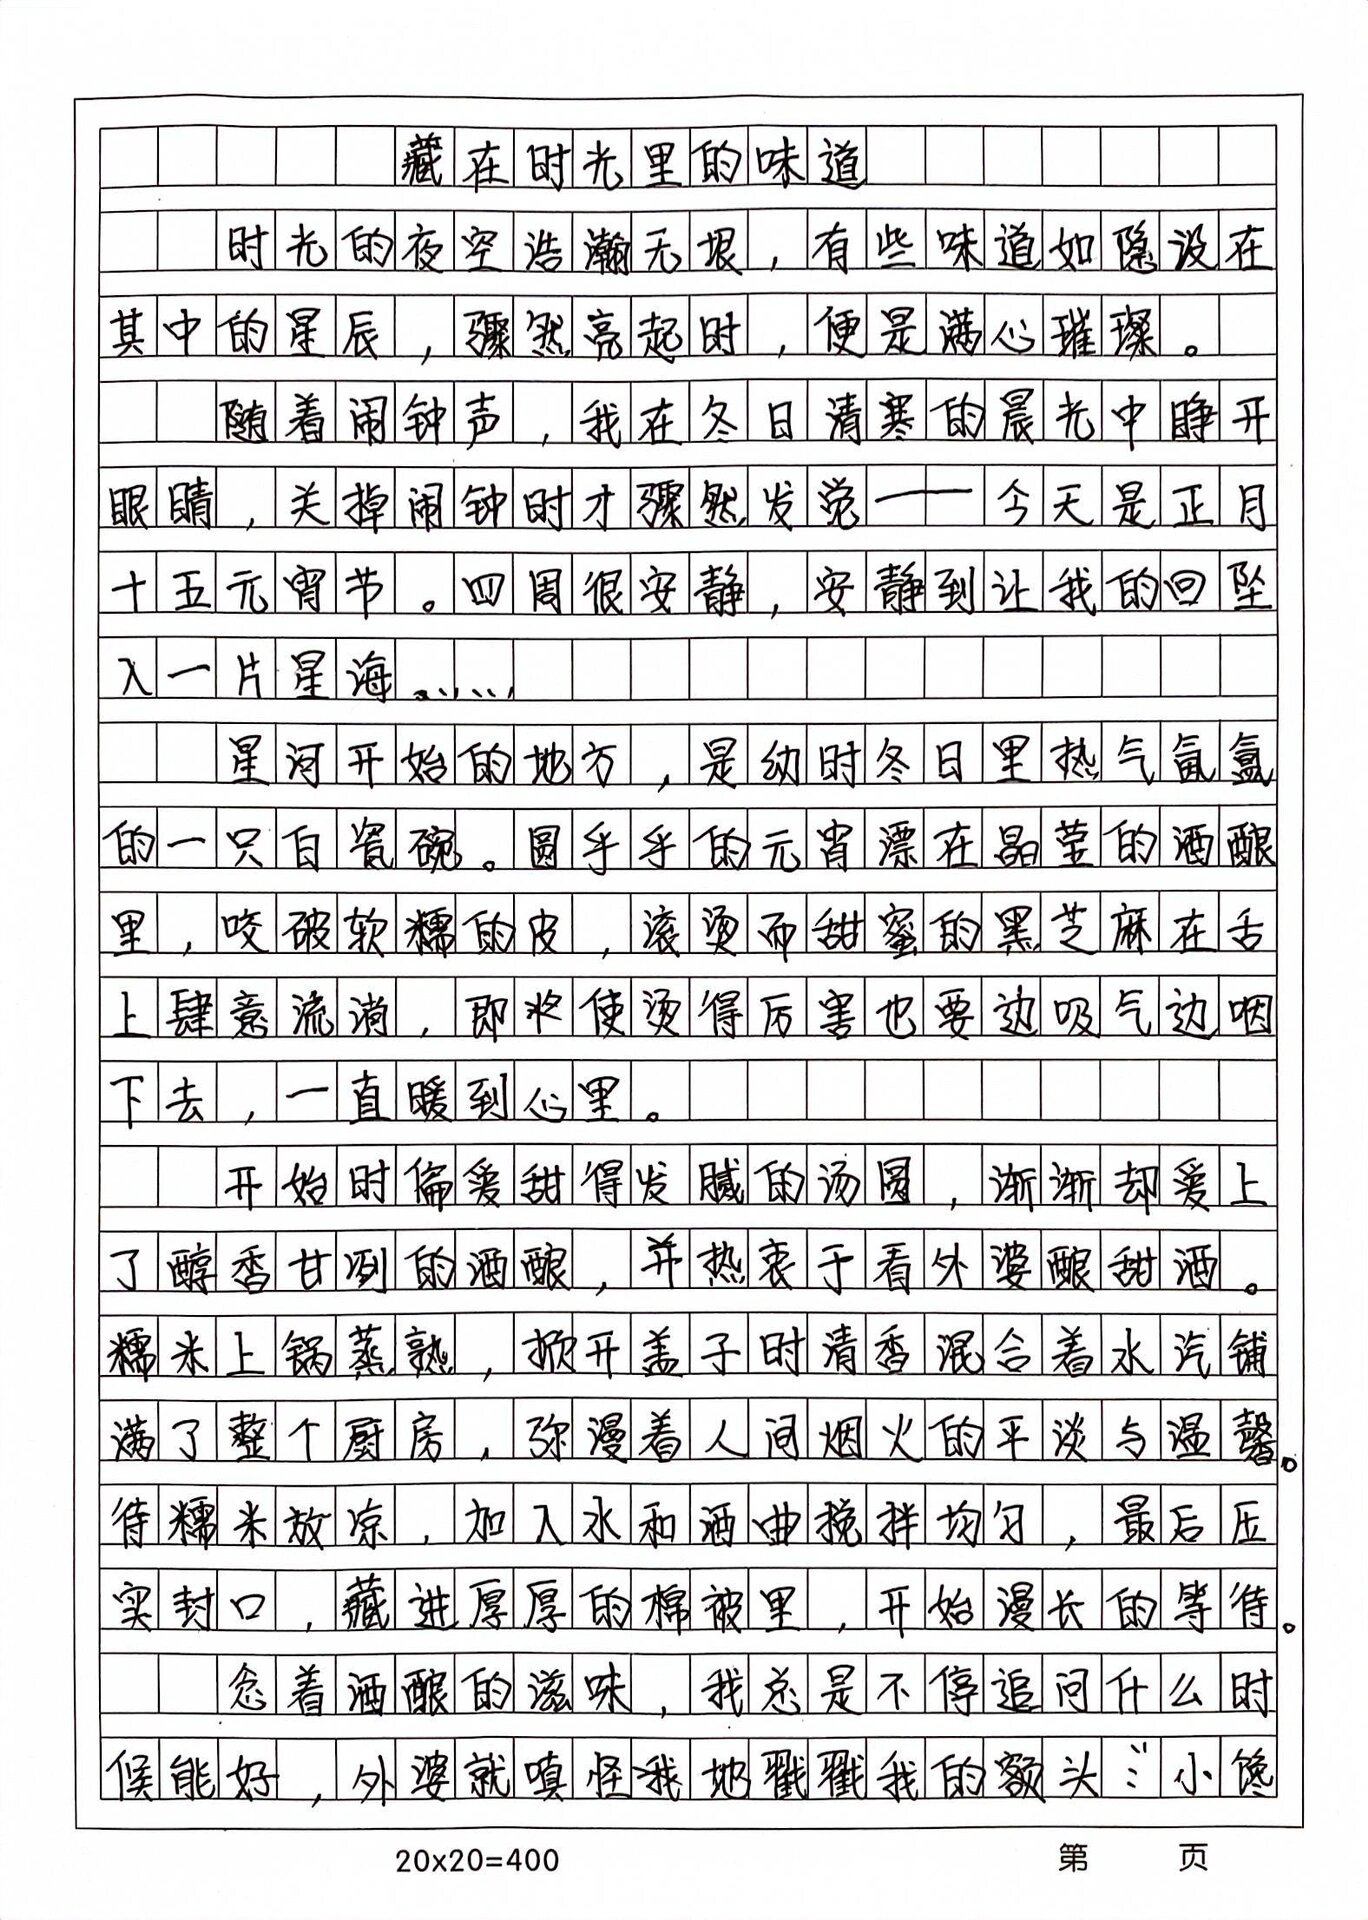 藏在时光里的味道
时光的夜空浩瀚无垠，有些味道如隐没在
其中的星辰，骤然亮起时，便是满心璀璨。
随着闹钟声，我在冬日清寒的晨光中睁开
眼睛，关掉闹钟时才骤然发觉——今天是正月
十五元宵节。四周很安静，安静到让我的回坠
入一片星海……
星河开始的地方，是幼时冬日里热气氤氲
的一只白瓷碗。圆乎乎的元宵漂在晶莹的酒酿
里，咬破软糯的皮，滚烫而甜蜜的黑芝麻在舌
上肆意流淌，即将使烫得厉害也要边吸气边咽
下去，一直暖到心里。
开始时偏爱甜得发腻的汤圆，渐渐却爱上
了醇香甘冽的酒酿，并热衷于看外婆酿甜酒。
糯米上锅蒸熟，掀开盖子时清香混合着水汽铺
满了整个厨房，弥漫着人间烟火的平淡与温馨。
待糯米放凉，加入水和酒曲搅拌均匀，最后压
实封口，藏进厚厚的棉被里，开始漫长的等待。
念着酒酿的滋味，我总是不停追问什么时
候能好，外婆就嗔怪我地戳戳我的额头：“小馋
20x20=400
第 页